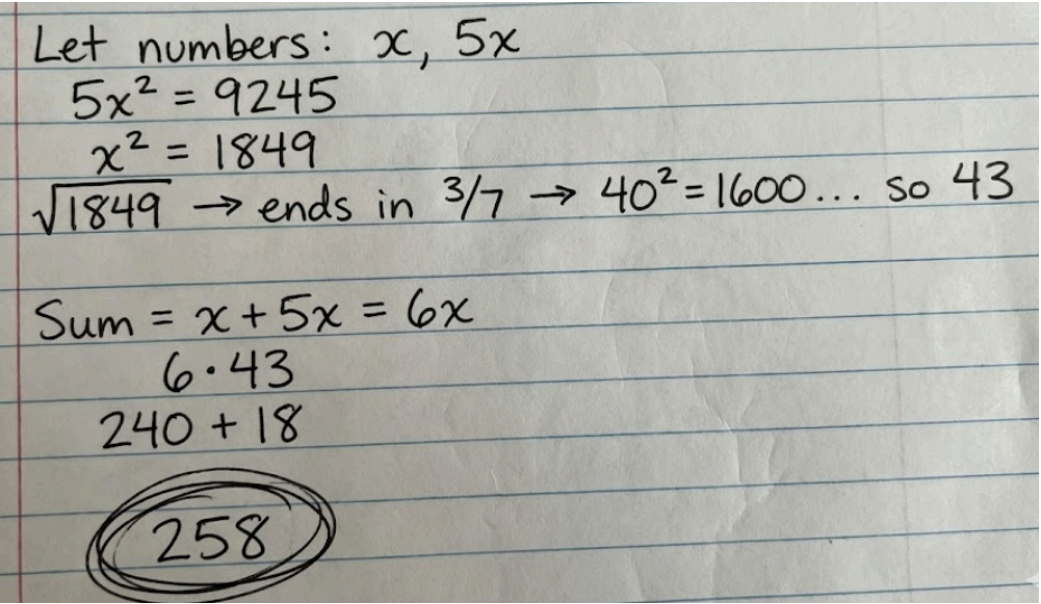 Let numbers: x, 5x
5x² = 9245
x² = 1849
√1849 → ends in 3/7 → 40² = 1600... so 43
Sum = x + 5x = 6x
6·43
240 + 18
258